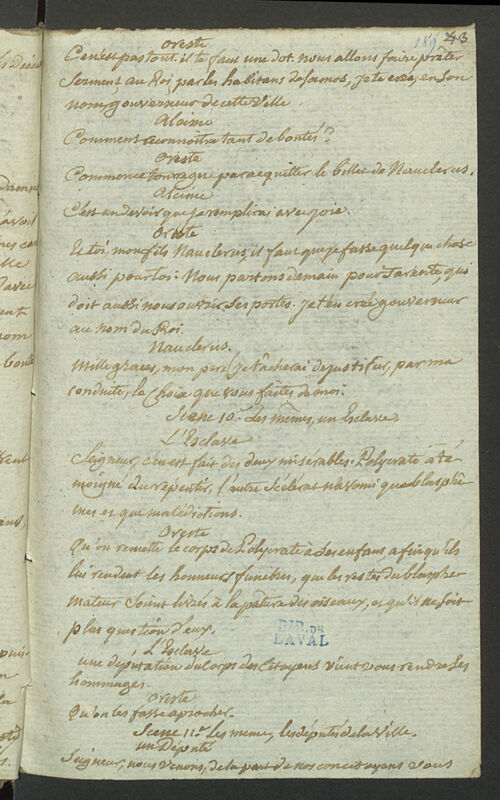 189 43
Oreste
Ce n'est pas tout, il te faut une dot. nous allons faire prêter
Serment au Roi par les habitans de Samos, je te crée, en son
nom, gouverneur de cette Ville.
Alcime
Comment reconnoitre tant de bontés?
Oreste
Commence l'ouvrage par acquitter le billet de Nauclerus.
Alcime
C'est un devoir que je remplirai avec joie.
Oreste
Et toi, mon fils Nauclerus, il faut que je fasse quelque chose
aussi pour toi. Nous partons demain pour Tarente qui
doit aussi nous ouvrir ses portes. je t'en crée gouverneur
au nom du Roi.
Nauclerus.
Mille graces, mon pere, je tâcherai de justifier, par ma
conduite, le Choix que vous faites de moi.
Scene 10e Les mêmes, un Esclave.
L'Esclave
Seigneur, c'en est fait des deux misérables. Polycrate a té-
moigné du repentir, l'autre Scélérat n'a vomi que des blasphê-
mes et que malédictions.
Oreste
Qu'on remette le corps de Polycrate à ses enfans afin qu'ils
lui rendent les honneurs funèbres, que les restes du blasphé-
mateur soient livrés à la pature des oiseaux, et qu'il ne soit
plus question d'eux.
BIB. DE
LAVAL
L'Esclave
une députation du Corps des Citoyens vient vous rendre ses
hommages.
Oreste
Qu'on les fasse aprocher.
Scene 11e Les mêmes, les députés de la Ville.
un Député
Seigneur, nous venons, de la part de nos concitoyens vous